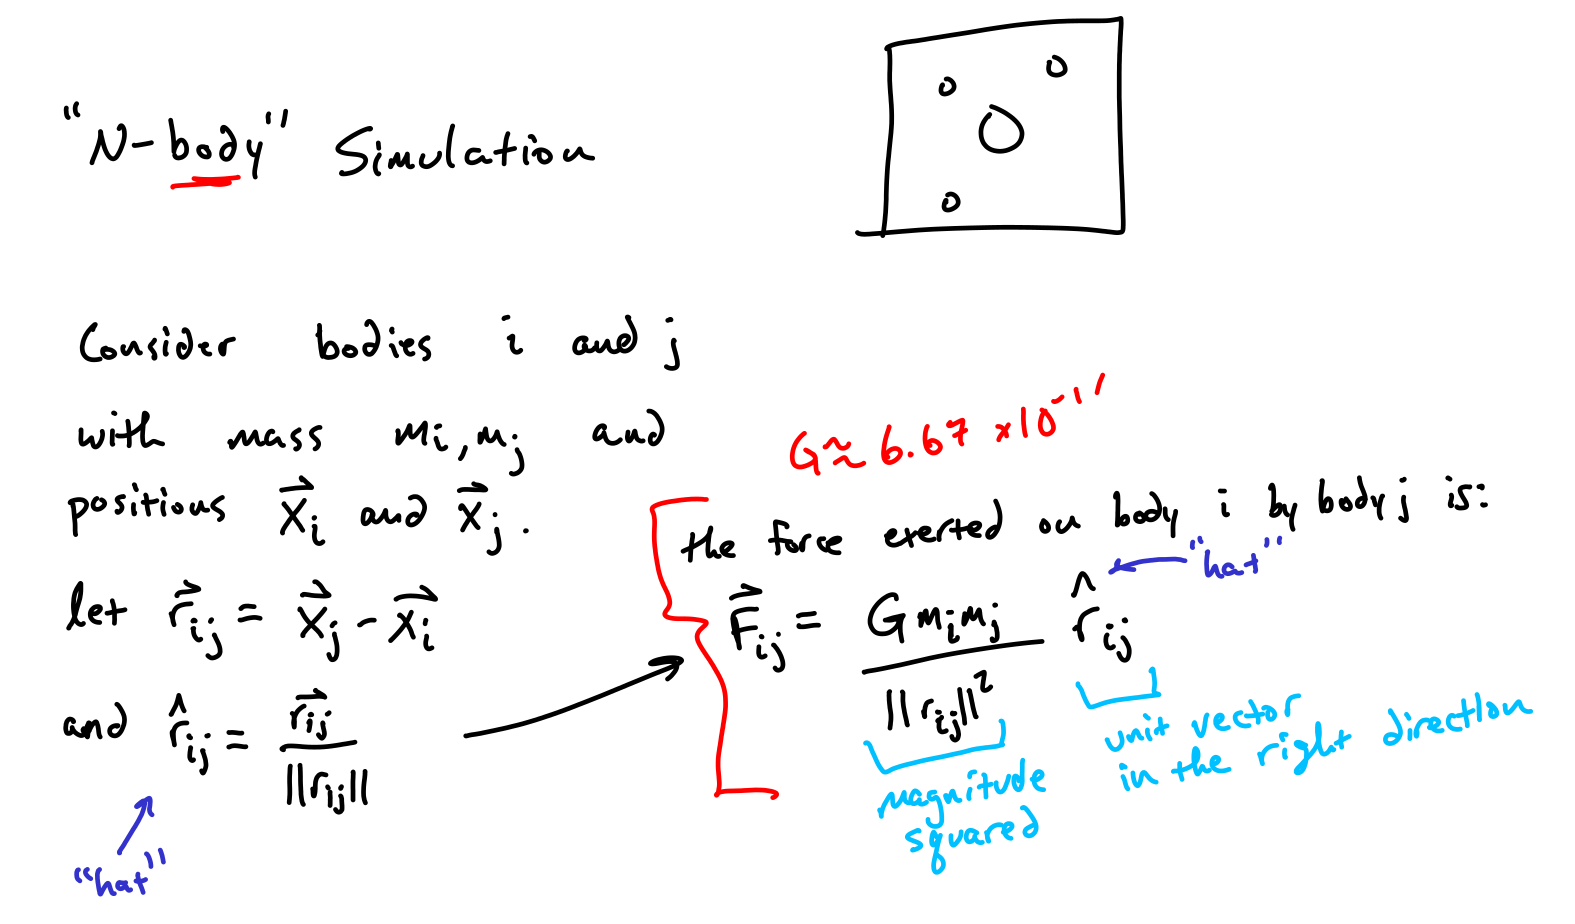 "N-body" Simulation
Consider bodies i and j
with mass mᵢ, mⱼ and
positions x⃗ᵢ and x⃗ⱼ.
let r⃗ᵢⱼ = x⃗ⱼ - x⃗ᵢ
and r̂ᵢⱼ = r⃗ᵢⱼ / ||rᵢⱼ||
"hat"
G ≈ 6.67 × 10⁻¹¹
the force exerted on body i by body j is:
"hat"
F⃗ᵢⱼ = G mᵢ mⱼ / ||rᵢⱼ||² r̂ᵢⱼ
magnitude
squared
unit vector
in the right direction